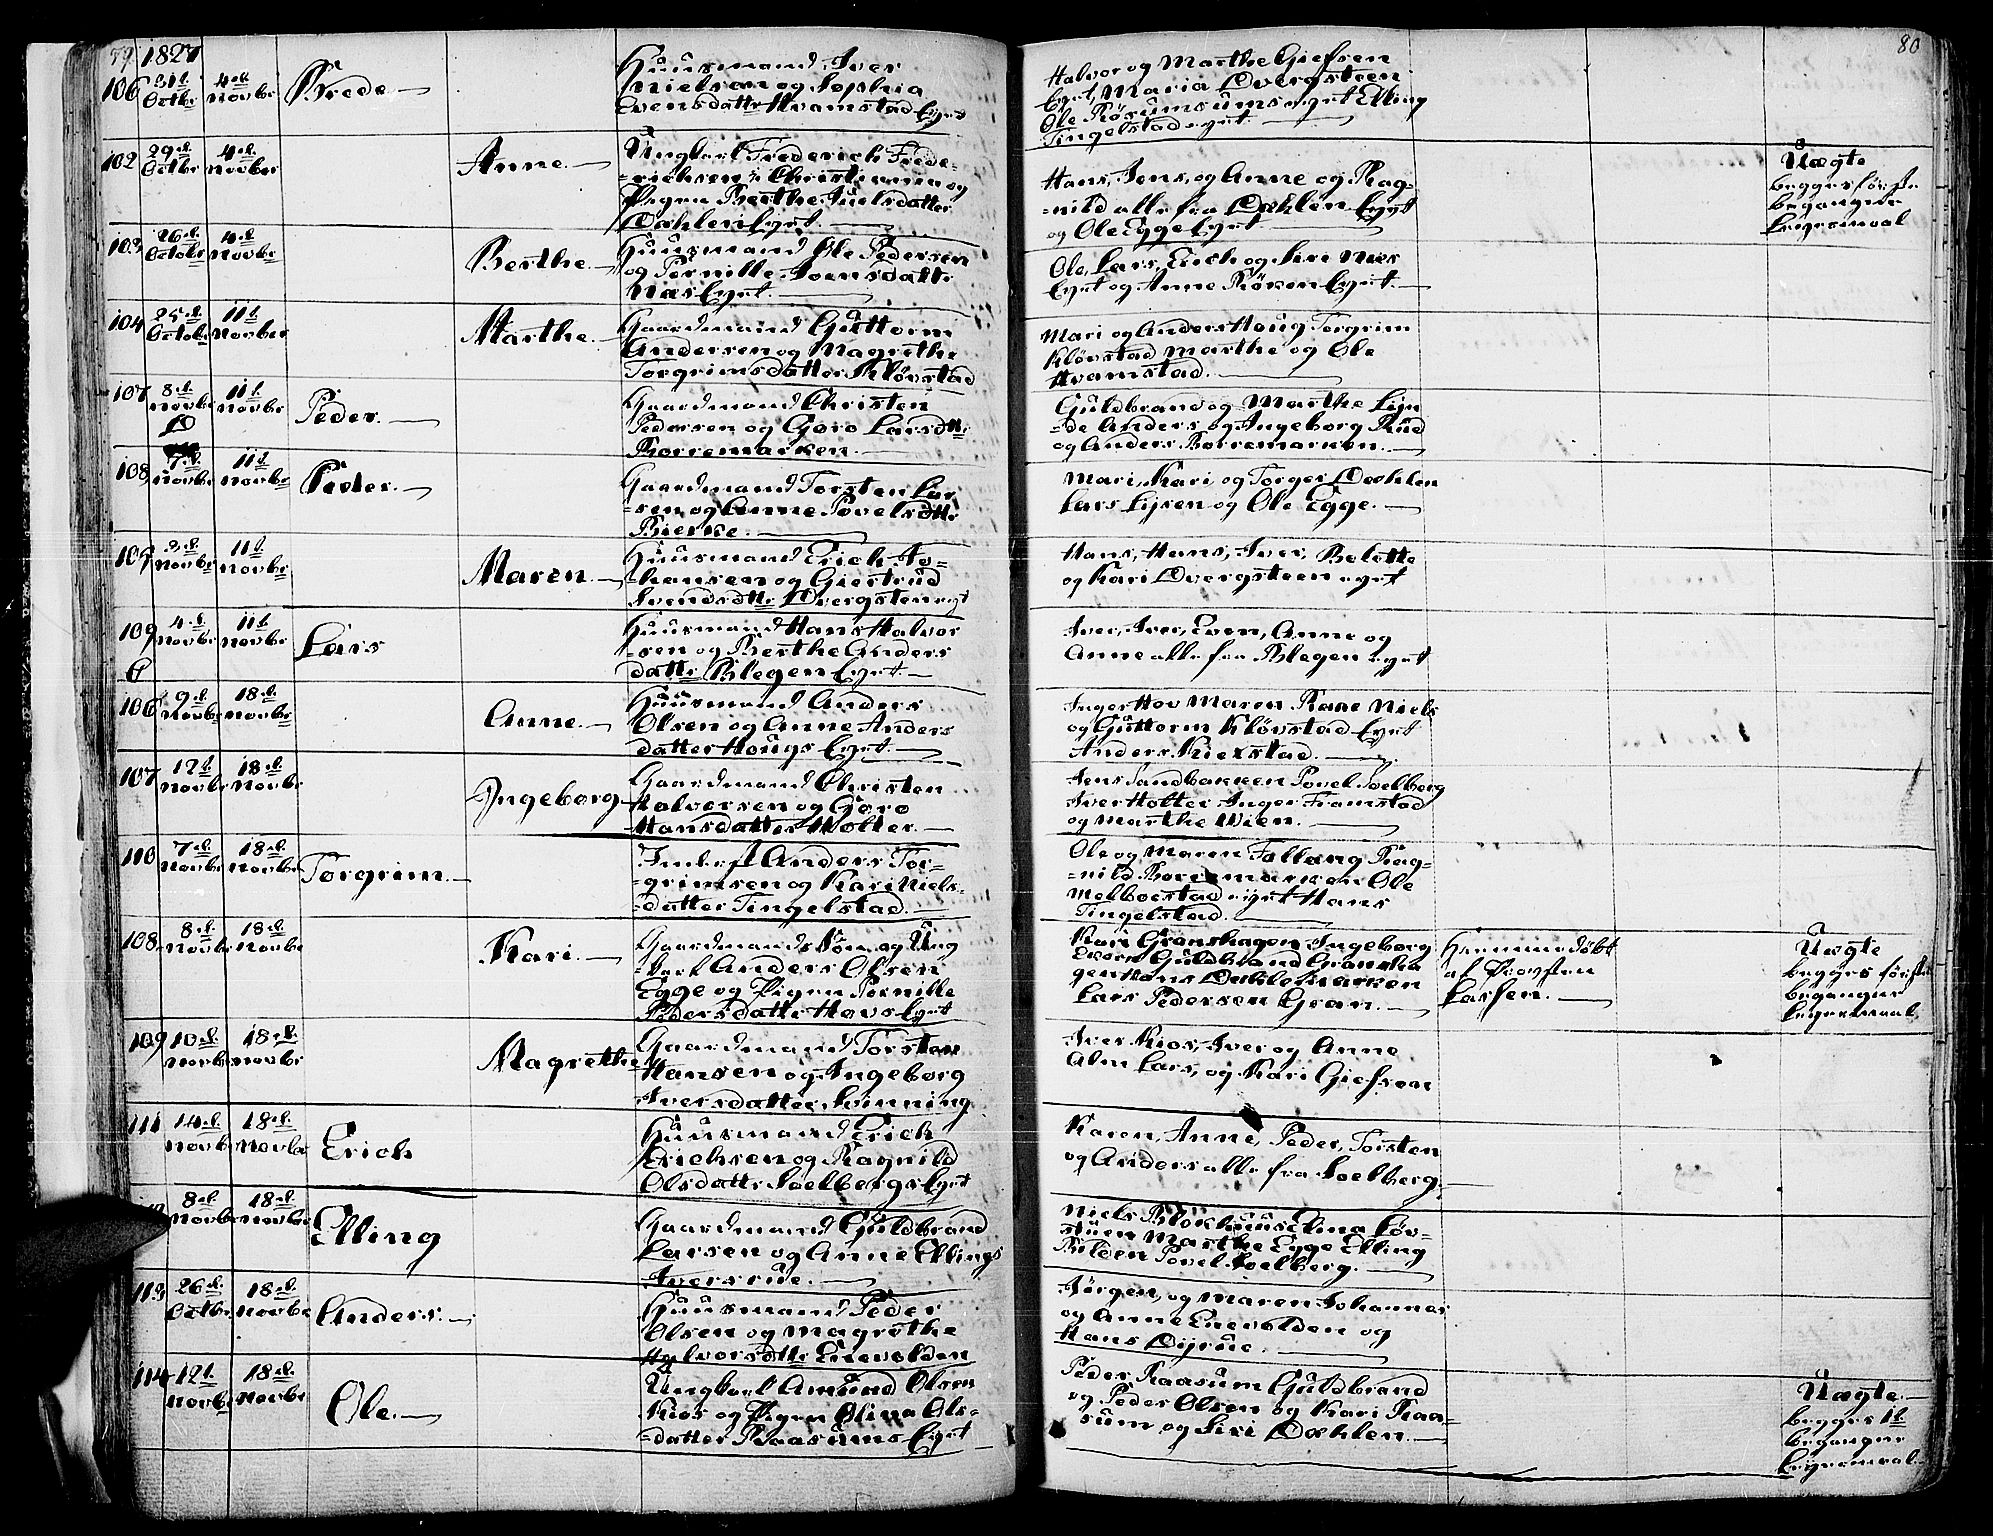 79. 1827
80
106 31t. Octbr 4de Novbr Brede
Huusmand Iver
Nielsen og Sophia
Evensdattr Hvamstad Eyet
Halvor og Marthe Giefsen
Eyet, Maria Dvergsteen
Ole Røsumsumseyet Elling
Tingelstadeyet.
102 29de Octbr 4de Novber Anne.
Ungkarl Frederich Frede-
-richsen i Christiania og
Pigen Berthe Juelsdatter
Dæhlen Eyet.
Hans, Jens, og Anne og Rag-
-nild alle fra Dæhlen Eyet
og Ole Egge Eyet.
Uægte
begges første
begangne
Leyermaal
103 26de Octobr 4de Novber Berthe.
Huusmand Ole Pedersen
og Pernille Svensdattr
Næs Eyet.
Ole, Lars, Erich og Siri Næs
Eyet og Anne Røken Eyet.
104 25de Octobr 11t. Novber Marthe.
Gaardmand Guttorm
Andersen og Magrethe
Torgrimsdatter Kløvstad
Mari og Anders Houg Torgrim
Kløvstad Marthe og Ole
Hvamstad.
107 8de Novbr 11t. Novbr Peder.
Gaardmand Christen
Pedersen og Goro Larsdttr
Borremarken.
Guldbrand og Marthe Lyn
-de Anders og Ingeborg Rud
og Anders Borremarken.
108 7de Novbr 11t. Novbr Peder.
Gaardmand Torsten Lar
-sen og Anne Povelsdttr
Bierke.
Mari, Kari og Torger Dæhlen
Lars Lysen og Ole Egge.
105 3de Novbr 11t. Novbr Maren.
Huusmand Erich Jo-
-hansen og Giertrud
Svendsdttr Dvergsteneyet
Hans, Hans, Iver, Belette
og Kari Dvergsteen eyet
109 4de Novbr 11t. Novbr Lars
Huusmand Hans Halvor
-sen og Berthe Anders
dattr Blegen Eyet.
Iver, Iver, Even, Anne og
Anne alle fra Blegen eyet
106 9de Novbr 18de Novbr Anne.
Huusmand Anders
Olsen og Anne Anders
datter Hougs Eyet.
Inger Hov Maren Rane Niels
og Guttorm Kløvstad Eyet
Anders Kiexstad.
107 12t. Novbr 18de Novbr Ingeborg
Gaardmand Christen
Halversen og Goro
Hansdatter Holter.
Jens Sandbakken Povel Soelberg
Iver Holter Inger Framstad
og Marthe Wien.
110 7de Novbr 18de Novbr Torgrim.
Inderst Anders Tor-
-grimsen og Kari Niels-
-datter Tingelstad.
Ole og Maren Fallang Rag-
-nild Borremarken Ole
Melboestad eyet Hans
Tingelstad.
108 8de Novbr 18de Novbr Kari.
Gaardmands Søn og Ung
-karl Anders Olsen
Egge og Pigen Pernille
Pedersdattr Hovs Eyet
Kari Granshagen Ingeborg
Guldbrand Gransha
gen Hans Dæhlemarken
Lars Pedersen Gran.
Hiemmedøbt
af Provsten
Lassen.
Uægte
begges første
begangne
Leyermaal
109 10de Novbr 18de Novbr Magrethe
Gaardmand Torsten
Hansen og Ingeborg
Iversdatter Svinning
Iver Kios, Iver og Anne
Alm Lars, og Kari Giefsen
111 14de Novbr 18de Novbr Erich
Huusmand Erich
Erichsen og Ragnild
Olsdattr Soelbergs Eyet
Karen, Anne, Peder, Torsten
og Anders alle fra Soelberg.
8de Novbr 18de Novbr Elling
Gaardmand Guldbrand
Larsen og Anne Ellings
Iversrue.
Niels Blokhuus Elina Løv-
stuen Marthe Egge Elling
Bilden Povel Soelberg.
113 26de Octbr 18de Novbr Anders.
Huusmand Peder
Olsen og Magrethe
Halvorsdttr Enevolden
Jørgen, og Maren Johannes
og Anne Enevolden og
Hans Dyrue.
114 12t. Novbr 18de Novbr Ole.
Ungkarl Amund Olsen
Kios og Pigen Olina Ols-
-datter Raasums Eyet
Peder Raasum Guldbrand
og Peder Olsen og Kari Raa-
-sum og Siri Dæhlen.
Uægte.
begges 1t.
begangne
Leyermaal